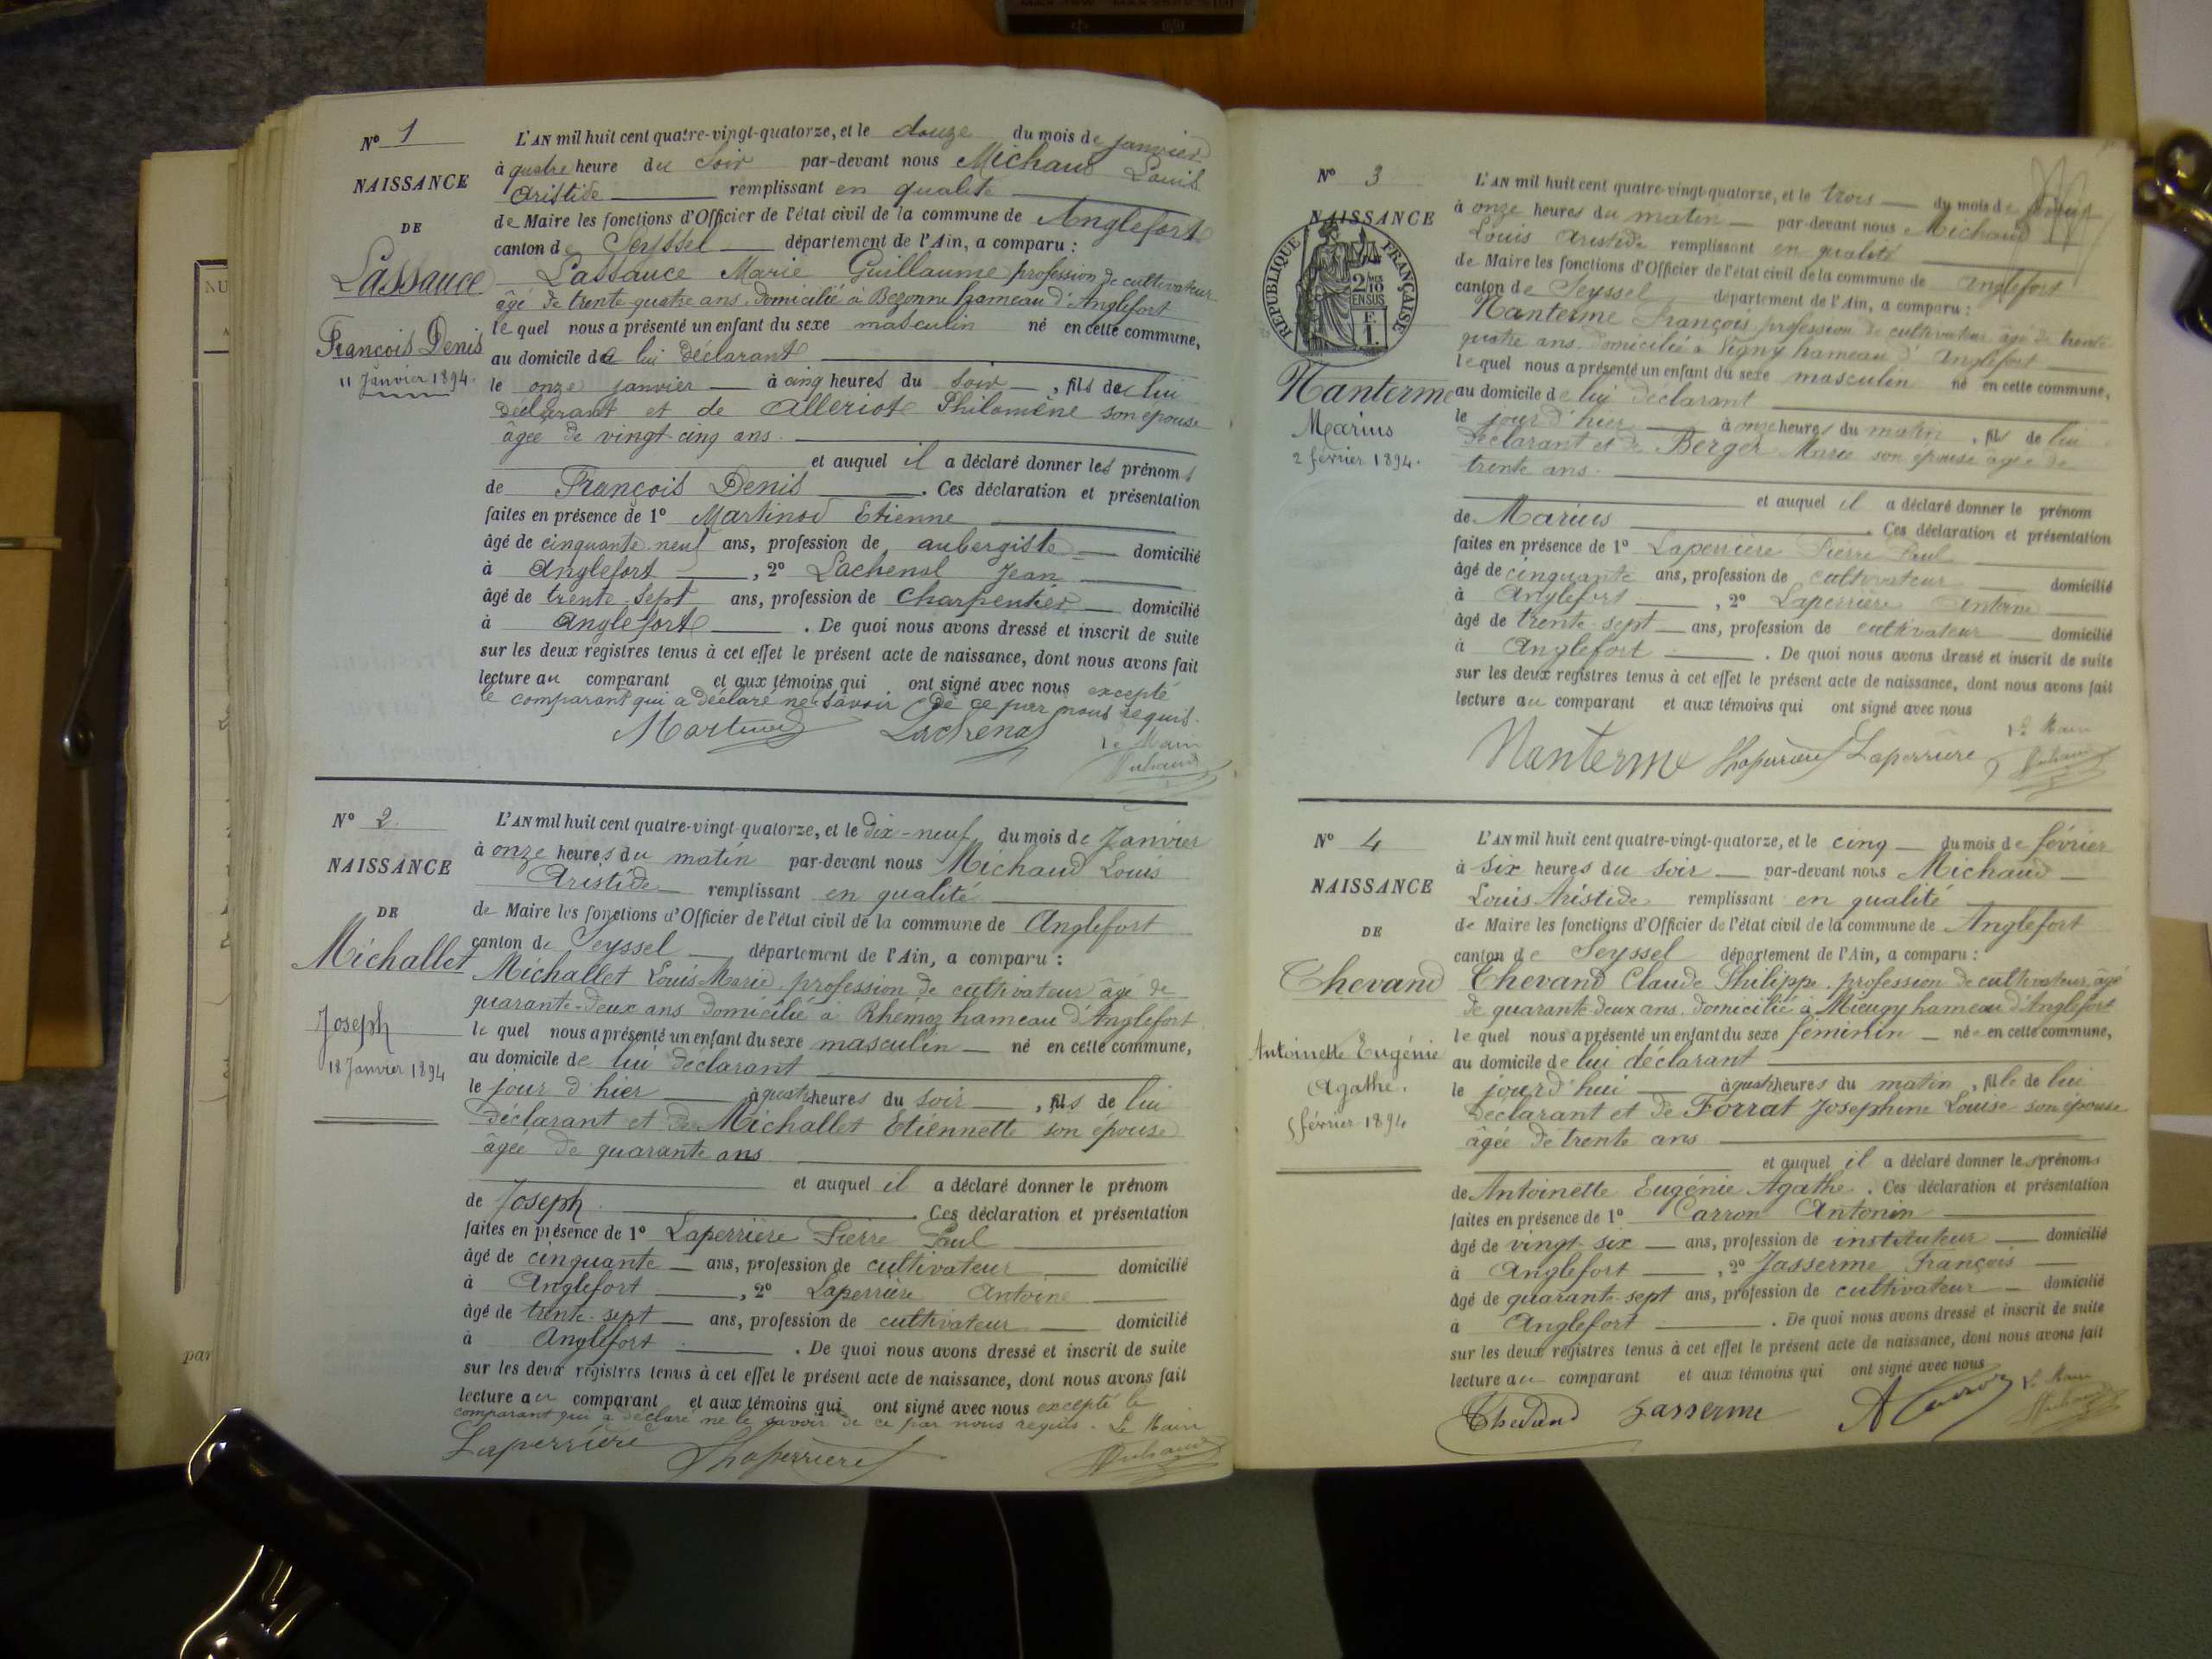 N° 1
NAISSANCE
DE
Lassauce
François Denis
11 Janvier 1894.
L'AN mil huit cent quatre-vingt-quatorze, et le douze du mois de janvier
à quatre heure du Soir par-devant nous Michaud Louis
Aristide remplissant en qualité
de Maire les fonctions d'Officier de l'état civil de la commune de Anglefort
canton de Seyssel département de l'Ain, a comparu :
Lassauce Marie Guillaume profession de cultivateur
âgé de trente-quatre ans. domicilié à Bezonne hameau d'Anglefort
le quel nous a présenté un enfant du sexe masculin né en cette commune,
au domicile de lui déclarant
le onze janvier à cinq heures du soir, fils de lui
déclarant et de Alleriot Philomène son épouse
âgée de vingt-cinq ans.
et auquel il a déclaré donner les prénoms
de François Denis. Ces déclaration et présentation
faites en présence de 1° Martinod Etienne
âgé de cinquante-neuf ans, profession de aubergiste domicilié
à Anglefort, 2° Lachenal Jean
âgé de trente-sept ans, profession de Charpentier domicilié
à Anglefort. De quoi nous avons dressé et inscrit de suite
sur les deux registres tenus à cet effet le présent acte de naissance, dont nous avons fait
lecture au comparant et aux témoins qui ont signé avec nous excepté
le comparant qui a déclaré ne savoir de ce par nous requis.
Martinod Lachenal Le Maire
Michaud
N° 2
NAISSANCE
DE
Michallet
Joseph
18 Janvier 1894
L'AN mil huit cent quatre-vingt-quatorze, et le dix-neuf du mois de Janvier
à onze heures du matin par-devant nous Michaud Louis
Aristide remplissant en qualité
de Maire les fonctions d'Officier de l'état civil de la commune de Anglefort
canton de Seyssel département de l'Ain, a comparu :
Michallet Louis Marie profession de cultivateur âgé de
quarante-deux ans domicilié à Rhémoz hameau d'Anglefort
le quel nous a présenté un enfant du sexe masculin né en cette commune,
au domicile de lui déclarant
le jour d'hier à quatre heures du soir, fils de lui
déclarant et de Michallet Etiennette son épouse
âgée de quarante ans
et auquel il a déclaré donner le prénom
de Joseph. Ces déclaration et présentation
faites en présence de 1° Laperrière Pierre Paul
âgé de cinquante ans, profession de cultivateur domicilié
à Anglefort, 2° Laperrière Antoine
âgé de trente-sept ans, profession de cultivateur domicilié
à Anglefort. De quoi nous avons dressé et inscrit de suite
sur les deux registres tenus à cet effet le présent acte de naissance, dont nous avons fait
lecture au comparant et aux témoins qui ont signé avec nous excepté le
comparant qui a déclaré ne le savoir de ce par nous requis. Le Maire
Laperrière Laperrière Michaud
N° 3
NAISSANCE
RÉPUBLIQUE FRANÇAISE
2/10
EN SUS
F.
1.
Nanterme
Marius
2 février 1894.
L'AN mil huit cent quatre-vingt-quatorze, et le trois du mois de
à onze heures du matin par-devant nous Michaud
Louis Aristide remplissant en qualité
de Maire les fonctions d'Officier de l'état civil de la commune de Anglefort
canton de Seyssel département de l'Ain, a comparu :
Nanterme François profession de cultivateur âgé de trente
quatre ans. domicilié à Vigny hameau d'Anglefort
le quel nous a présenté un enfant du sexe masculin né en cette commune,
au domicile de lui déclarant
le jour d'hier à onze heures du matin, fils de lui
déclarant et de Berger Marie son épouse âgée de
trente ans.
et auquel il a déclaré donner le prénom
de Marius. Ces déclaration et présentation
faites en présence de 1° Laperrière Pierre Paul
âgé de cinquante ans, profession de cultivateur domicilié
à Anglefort, 2° Laperrière Antoine
âgé de trente-sept ans, profession de cultivateur domicilié
à Anglefort. De quoi nous avons dressé et inscrit de suite
sur les deux registres tenus à cet effet le présent acte de naissance, dont nous avons fait
lecture au comparant et aux témoins qui ont signé avec nous
Nanterme Laperrière Laperrière Le Maire
Michaud
N° 4
NAISSANCE
DE
Chevand
Antoinette Eugénie
Agathe.
5 février 1894
L'AN mil huit cent quatre-vingt-quatorze, et le cinq du mois de février
à six heures du soir par-devant nous Michaud
Louis Aristide remplissant en qualité
de Maire les fonctions d'Officier de l'état civil de la commune de Anglefort
canton de Seyssel département de l'Ain, a comparu :
Chevand Claude Philippe. profession de cultivateur, âgé
de quarante-deux ans. domicilié à Mieugy hameau d'Anglefort
le quel nous a présenté un enfant du sexe féminin née en cette commune,
au domicile de lui déclarant
le jourd'hui à quatre heures du matin, fille de lui
déclarant et de Forrat Josephine Louise son épouse
âgée de trente ans
et auquel il a déclaré donner les prénoms
de Antoinette Eugénie Agathe. Ces déclaration et présentation
faites en présence de 1° Carron Antonin
âgé de vingt-six ans, profession de instituteur domicilié
à Anglefort, 2° Jasserme François
âgé de quarante-sept ans, profession de cultivateur domicilié
à Anglefort. De quoi nous avons dressé et inscrit de suite
sur les deux registres tenus à cet effet le présent acte de naissance, dont nous avons fait
lecture au comparant et aux témoins qui ont signé avec nous
Chevand Jasserme A Carron Le Maire
Michaud
par